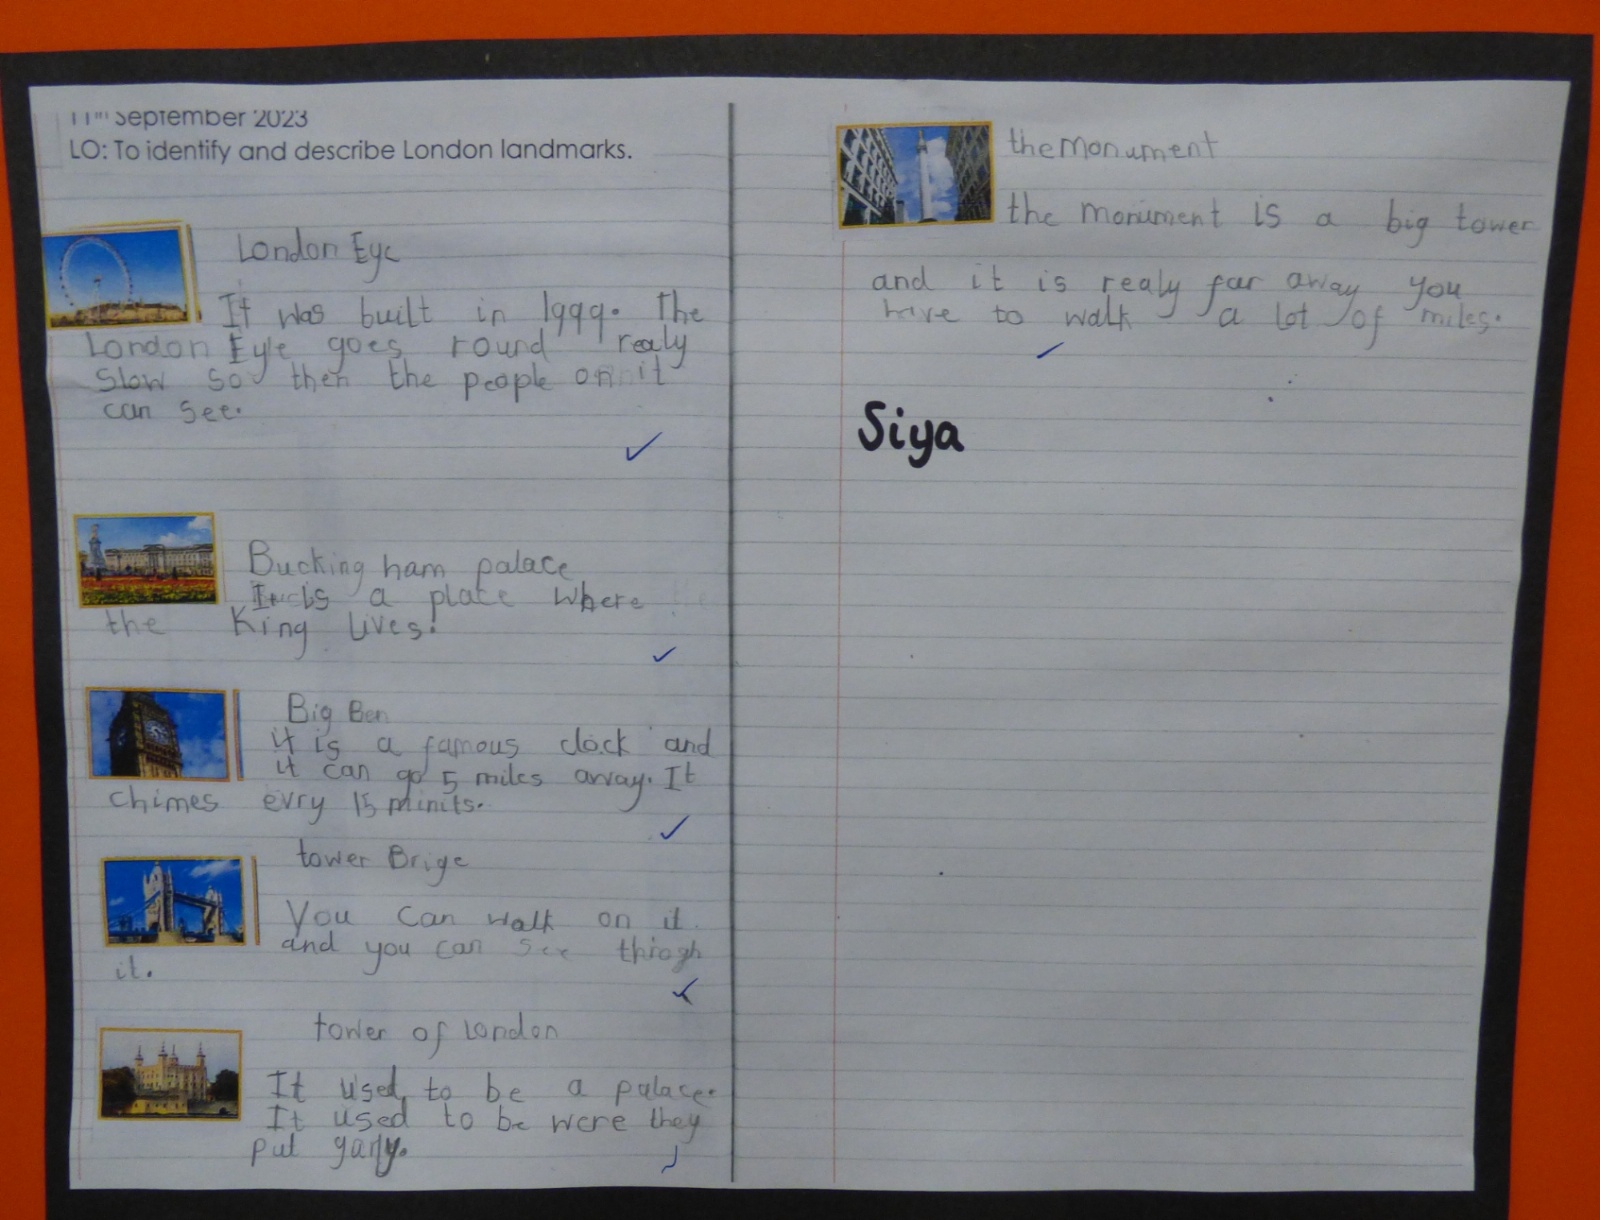 11th September 2023
LO: To identify and describe London landmarks.
London Eye
It was built in 1999. The
London Eye goes round realy
Slow so then the people on it
can see.
Bucking ham palace
is a place where
the King lives.
Big Ben
it is a famous clock and
it can go 5 miles away. It
chimes evry 15 minits.
tower Brige
You can walk on it
and you can see throgh
it.
tower of London
It used to be a palace.
It used to be were they
put
the monument
the monument is a big tower
and it is realy far away you
have to walk a lot of miles.
Siya